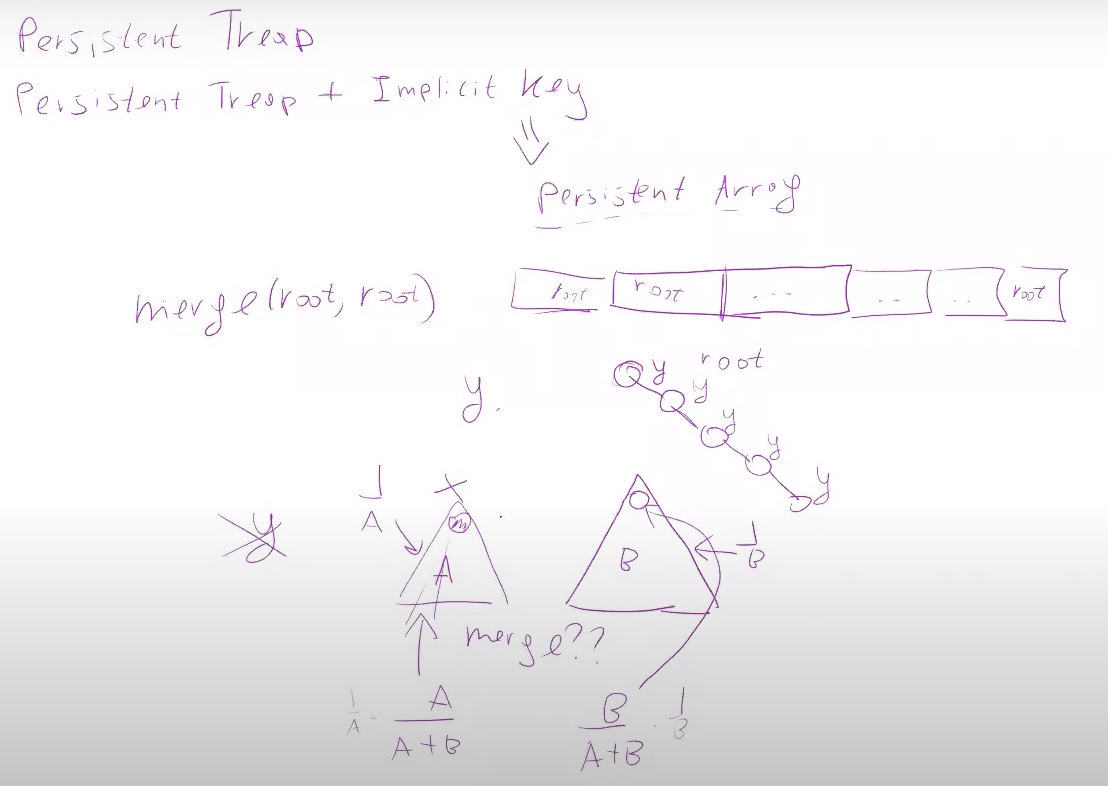 Persistent Treap
Persistent Treap + Implicit Key
⇓
Persistent Array
merge(root, root)
root root ... .. .. root
y root
y
y
y
y
y.
1/A
y
m
A
B
1/B
merge??
1/A · A/(A+B)
B/(A+B) · 1/B